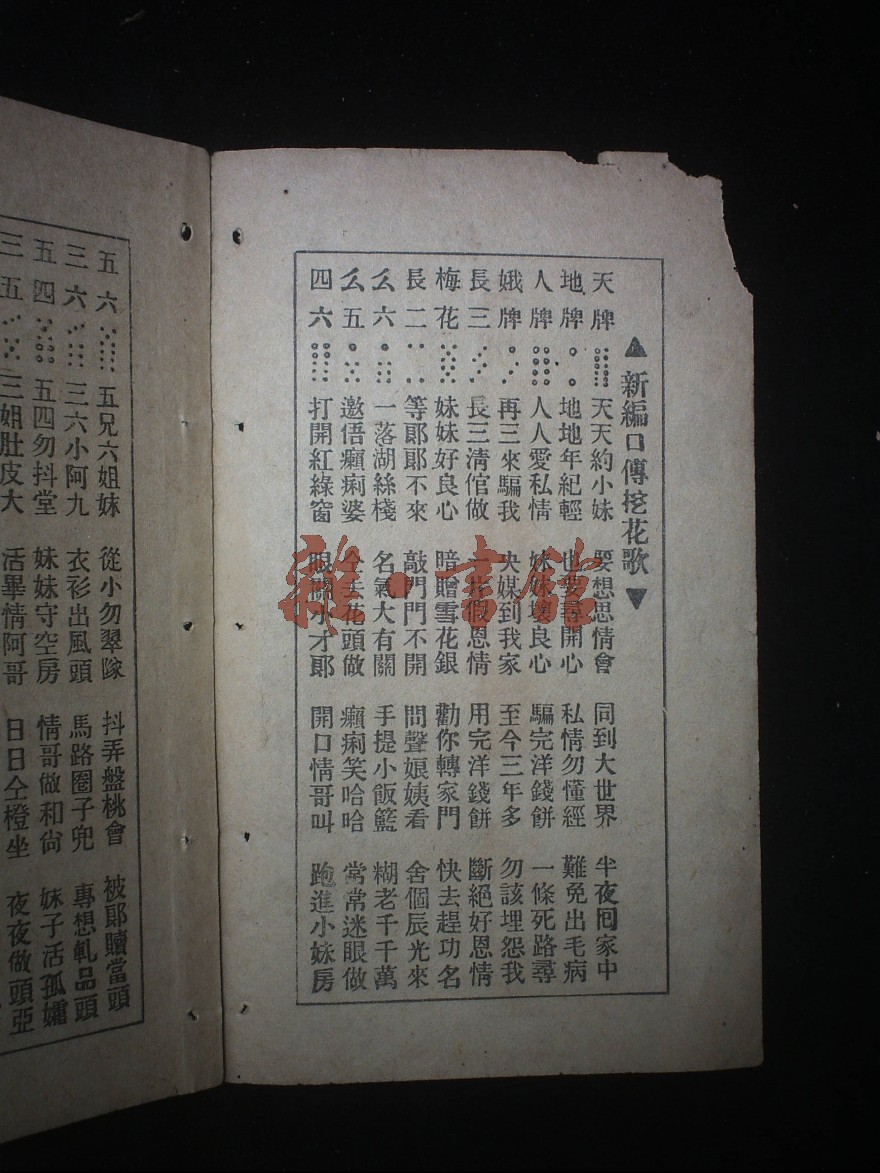 ▲新編口傳挖花歌▼
天牌 天天約小妹 要想思情會 同到大世界 半夜囘家中
地牌 地地年紀輕 也要尋開心 私情勿懂經 難免出毛病
人牌 人人愛私情 妹妹壞良心 騙完洋錢餅 一條死路尋
娥牌 再三來騙我 央媒到我家 至今三年多 勿該埋怨我
長三 長三清倌做 一片假恩情 用完洋錢餅 斷絕好恩情
梅花 妹妹好良心 暗贈雪花銀 勸你轉家門 快去趕功名
長二 等郞郞不來 敲門門不開 問聲娘姨看 舍個辰光來
么六 一落湖絲棧 名氣大有關 手提小飯籃 糊老千千萬
么五 邀伍癩痢婆 仝去花頭做 癩痢笑哈哈 常常迷眼做
四六 打開紅綠窗 眼關水才郞 開口情哥叫 跑進小妹房
五六 五兄六姐妹 從小勿翠隊 抖弄盤桃會 被郞贖當頭
三六 三六小阿九 衣衫出風頭 馬路圈子兜 專想軋品頭
五四 五四勿抖堂 妹妹守空房 情哥做和尙 妹子活孤孀
三五 三姐肚皮大 活畢情阿哥 日日仝橙坐 夜夜做頭亞
雜·書館